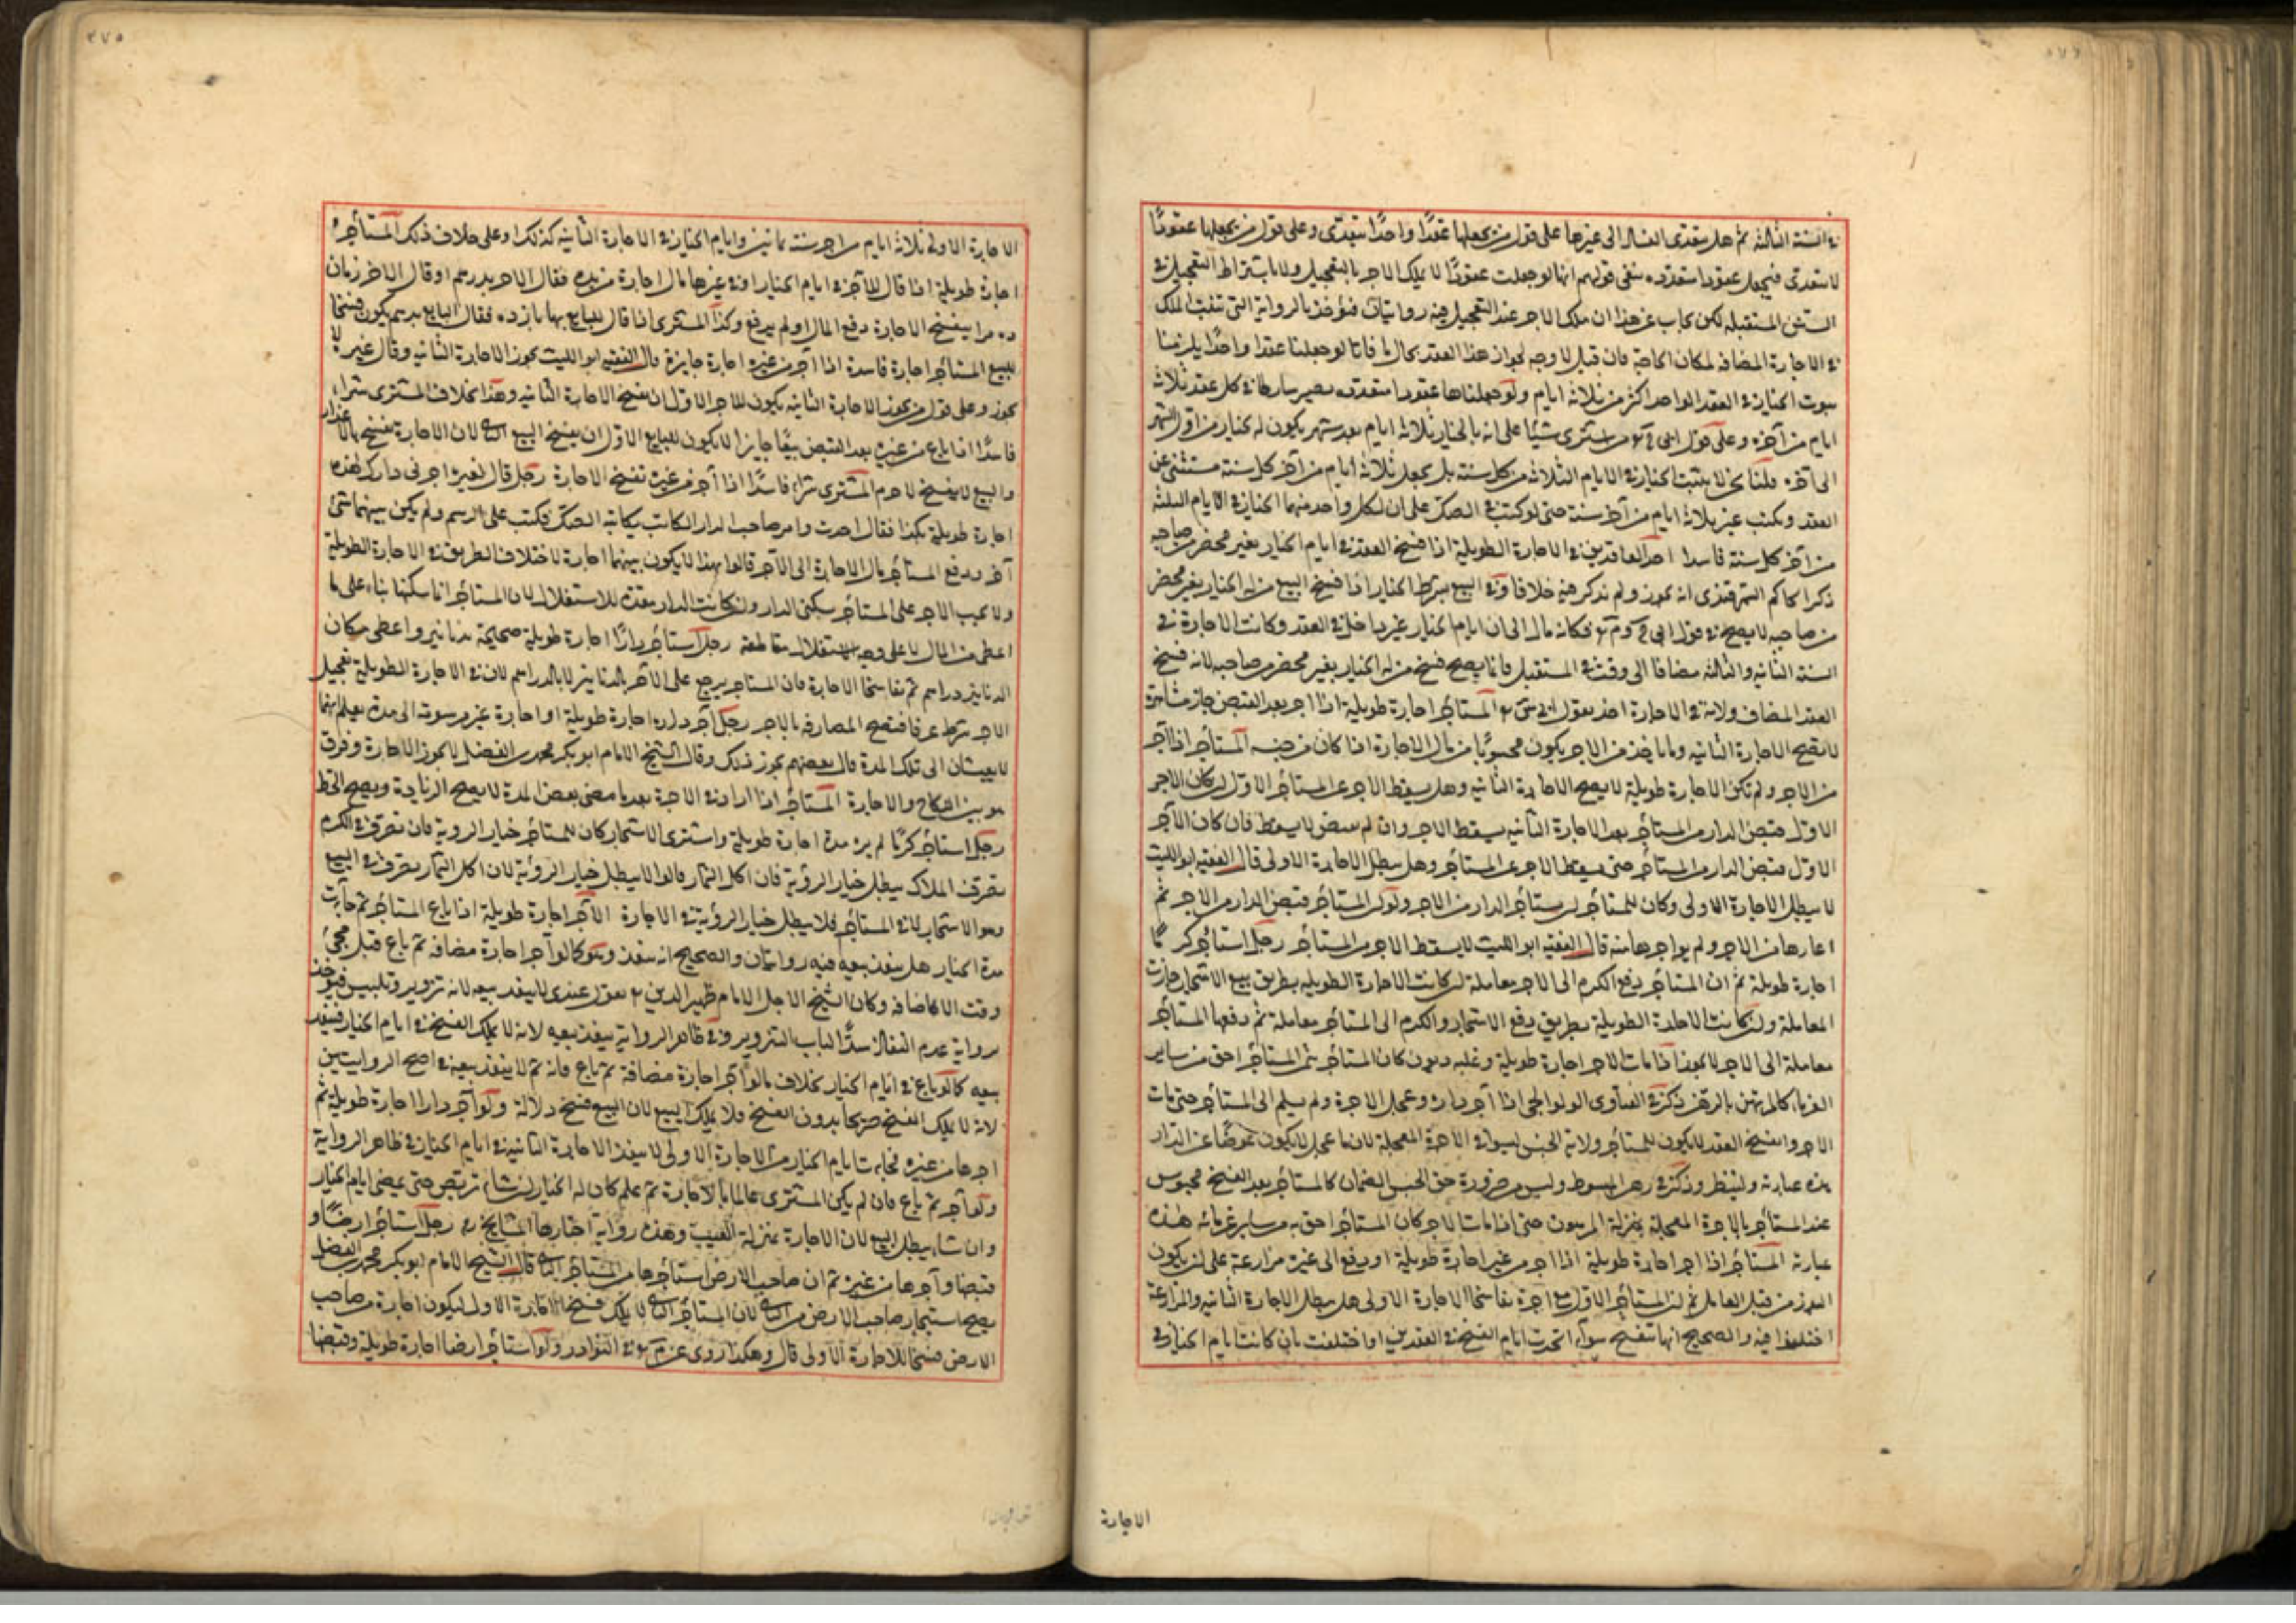 في السنة الثالثة ثم هل يتعدى الفساد الى غيرها على قول من يجعلها عقدًا واحدًا يتعدى وعلى قول من يجعلها عقودًا
لا يتعدى فيجعل عقودا متعددة بنفي قولهم انها لو جعلت عقودًا لا يملك الاجر بالتعجيل ولا باشتراط التعجيل في
السنين المستقبله لكن يجاب عن هذا ان ملك الاجر عند التعجيل فيه روايتان فنؤخذ بالرواية التي تثبت الملك
في الاجارة المضافه لمكان الحاجة فان قيل لا وجه لجواز هذا العقد بحال ما فانا لو جعلنا عقدا واحدًا يلزمنا
ثبوت الخيار في العقد الواحد اكثر من ثلاثة ايام ولو جعلناها عقودا متعدده يصير شارطا في كل عقد ثلاثة
ايام من آخره وعلى قول ابي ح من اشترى شيئا على انه بالخيار ثلاثة ايام بعد شهر يكون له الخيار من اول الشهر
الى آخره قلنا نحن لا نثبت الخيار في الايام الثلاثة من كل سنة بل يجعل ثلاثة ايام من آخر كل سنة مستثنى عن
العقد ويكتب غير ثلاثة ايام من آخر سنة حتى لو كتب في الصك على ان لكل واحد منهما الخيار في الايام الثلثة
من آخر كل سنة فاسدا احد العاقدين في الاجارة الطويلة اذا فسخ العقد في ايام الخيار بغير محضر من صاحبه
ذكر الحاكم السمرقندي انه يجوز ولم يذكر فيه خلافا وفي البيع بشرط الخيار اذا فسخ البيع من له الخيار بغير محضر
من صاحبه لا يصح في قول ابي ح وم فكانه مال الى ان ايام الخيار غير داخل في العقد وكانت الاجارة في
السنة الثانيه والثالثه مضافا الى وقت في المستقبل فانما يصح فسخ من له الخيار بغير محضر من صاحبه لانه فسخ
العقد المضاف ولانه في الاجارة اخذ بقول المستأجر اجارة طويلة اذا اجر بعد القبض جاز
لا تفسخ الاجارة الثانيه وما ياخذ من الاجر يكون محسوبًا من مال الاجارة اذا كان من جنسه المستأجر اذا آجر
من الاجر ولم تكن الاجارة طويلة لا يصح الاجارة الثانيه وهل يسقط الاجر عن المستأجر الاول ان كان الاجر
الاول قبض الدار من المستأجر بعد الاجارة الثانيه يسقط الاجر وان لم يقبض لا يسقط فان كان الآجر
الاول قبض الدار من المستأجر حتى يسقط الاجر عن المستأجر وهل يبطل الاجارة الاولى قال الفقيه ابو الليث
لا يبطل الاجارة الاولى وكان للمستأجر ان يستأجر الدار من الاجر ولو ان المستأجر قبض الدار من الاجر ثم
اعارها من الاجر ولم يواجرها منه قال الفقيه ابو الليث لا يسقط الاجر من المستأجر رجل استأجر كرمًا
اجارة طويلة ثم ان المستأجر دفع الكرم الى الاجر معاملة ان كانت الاجارة الطويله بطريق بيع الاشجار جازت
المعاملة وان كانت الاجارة الطويلة بطريق دفع الاشجار والكرم الى المستأجر معاملة ثم دفعها المستأجر
معاملة الى الاجر لا يجوز اذا مات الاجر اجارة طويلة وعليه ديون كان المستأجر بثمن المستأجر احق من ساير
الغرماء كالمرتهن بالرهن ذكره في الفتاوى الولوالجي اذا آجر داره وعجل الاجرة ولم يسلم الى المستأجر حتى مات
الاجر وانفسخ العقد لا يكون للمستأجر ولاية الحبس ليستوفي الاجرة المعجلة لان ما عجل لا يكون عوضًا عن الدار
هذه عبارته ولينظر وذكر في رهن المبسوط وليس من ضرورة حق الحبس الضمان كالمستأجر بعد الفسخ محبوس
عند المستأجر بالاجرة المعجلة بمنزلة المرهون حتى اذا مات الاجر كان المستأجر احق به من ساير غرمائه هذه
عبارته المستأجر اذا اجر اجارة طويلة اذا اجر من غير اجارة طويلة او دفع الى غيره مزارعة على ان يكون
البذر من قبل العامل ثم ان المستأجر الاول مع اجره تفاسخا الاجارة الاولى هل يبطل الاجارة الثانيه والمزارعة
اختلفوا فيه والصحيح انها تنفسخ سوآء اتحدت ايام الفسخ في العقدين او اختلفت بان كانت ايام الخيار في
الاجارة
الاجارة الاولى ثلاثة ايام من اخر سنة ثمانين وايام الخيار في الاجارة الثانيه كذلك او على خلاف ذلك المستأجر
اجارة طويلة اذا قال للآجر في ايام الخيار او في غيرها مال اجارة من بده فقال الاجر بدرهم او قال الاخر زمان
ده مرا ينفسخ الاجارة دفع المال او لم يدفع وكذا المشترى اذا قال للبايع بها باز ده فقال البايع بدهم يكون فسخا
للبيع المستأجر اجارة فاسدة اذا آجر من غيره اجارة جايزة قال الفقيه ابو الليث يجوز الاجارة الثانيه وقال غيره لا
يجوز وعلى قول من يجوز الاجارة الثانيه يكون للاجر الاول ان يفسخ الاجارة الثانيه وهذا بخلاف المشترى شراء
فاسدًا اذا باع من غيره بعد القبض بيعًا جايزا لا يكون للبايع الاول ان يفسخ البيع الثاني لان الاجارة تفسخ بالاعذار
والبيع لا يفسخ لا جرم المشترى شراء فاسدًا اذا آجر من غيره تفسخ الاجارة رجل قال لغيره اجرني دارك هذه
اجارة طويلة بكذا فقال اجرت وامر صاحب الدار الكاتب بكتابة الصك فكتب على الرسم ولم يكن بينهما شئ
آخر ودفع المستأجر مال الاجارة الى الآجر قالوا بهذا لا يكون بينهما اجارة لاختلاف الطريق في الاجارة الطويلة
ولا يجب الاجر على المستأجر بسكنى الدار وان كانت الدار معدة للاستغلال لان المستأجر انما سكنها بناء على ما
اعطى من المال لا على وجه الاستغلال مقاطعة رجل استأجر دارًا اجارة طويلة صحيحة بدنانير واعطى مكان
الدنانير دراهم ثم تفاسخا الاجارة فان المستاجر يرجع على الآجر بالدنانير لا بالدراهم لان في الاجارة الطويلة تعجيل
الاجر شرط عرفا فتصح المصارفه بالاجر رجل آجر داره اجارة طويلة او اجارة غير مرسومه الى مدة يعلم انهما
لا يعيشان الى تلك المدة قال بعضهم يجوز ذلك وقال الشيخ الامام ابو بكر محمد بن الفضل لا يجوز الاجارة وفرق
هو بين النكاح والاجارة المستأجر اذا زاد في الاجرة بعد ما مضى بعض المدة لا يصح الزيادة ويصح الحط
رجل استأجر كرمًا لم يره مدة اجارة طويلة واشترى الاشجار كان للمستأجر خيار الروية فان تصرف في الكرم
تصرف الملاك يبطل خيار الرؤية فان اكل الثمار قالوا لا يبطل خيار الرؤية لان اكل الثمار تصرف في البيع
وهو الاشجار لا في المستأجر فلا يبطل خيار الرؤية في الاجارة الآجر اجارة طويلة اذا باع المستأجر ثم جاءت
مدة الخيار هل ينفذ بيعه فيه روايتان والصحيح انه ينفذ وهو كما لو آجر اجارة مضافه ثم باع قبل مجئ
وقت الاضافه وكان الشيخ الاجل الامام ظهير الدين يقول عندي لا ينفذ بيعه لانه تزوير وتلبيس فيؤخذ
برواية عدم النفاذ سدًّا لباب التزوير وفي ظاهر الرواية ينفذ بيعه لانه لا يملك الفسخ في ايام الخيار فينفذ
بيعه كما لو باع في ايام الخيار بخلاف ما لو آجر اجارة مضافة ثم باع فانه ثم لا ينفذ بيعه في اصح الروايتين
لانه لا يملك الفسخ صريحا بدون الفسخ فلا يملك البيع لان البيع فسخ دلالة ولو آجر دارا اجارة طويلة ثم
اجرها من غيره فجاءت ايام الخيار من الاجارة الاولى لا ينفذ الاجارة الثانية في ايام الخيار في ظاهر الرواية
ولو آجر ثم باع فان لم يكن المشترى عالما بالاجارة ثم علم كان له الخيار ان شاء تربص حتى يمضى ايام الخيار
وان شاء يبطل البيع لان الاجارة بمنزلة العيب وهذه رواية اختارها المشايخ رجل استأجر ارضًا و
قبضها وآجرها من غيره ثم ان صاحب الارض استأجرها من المستأجر الثاني قال الشيخ الامام ابو بكر محمد بن الفضل
يصح استيجار صاحب الارض من الثاني لان المستأجر الثاني لا يملك فسخ الاجارة الاولى ليكون اجارة من صاحب
الارض فسخا للاجارة الاولى قال وهكذا روى عن م في النوادر ولو استأجر ارضا اجارة طويلة وقبضها